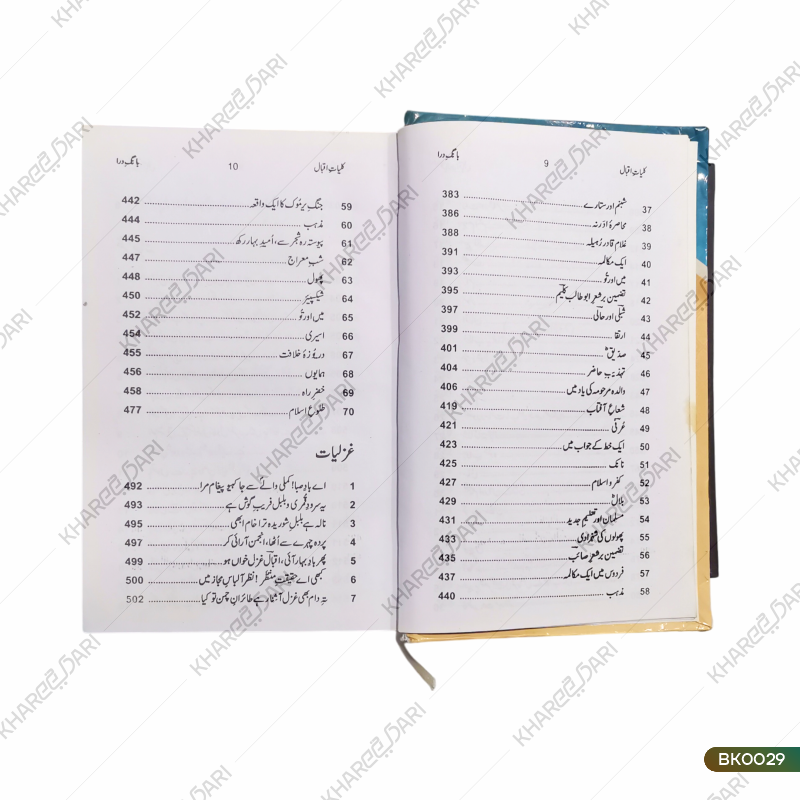 کلیاتِ اقبال 9 بانگِ درا
37 شبنم اور ستارے 383
38 محاصرۂ ادرنہ 386
39 غلام قادر رُہیلہ 388
40 ایک مکالمہ 391
41 میں اور تُو 393
42 تضمین برشعرِ ابوطالب کلیم 395
43 شبلی اور حالی 397
44 ارتقا 399
45 صدیقؓ 401
46 تہذیبِ حاضر 404
47 والدہ مرحومہ کی یاد میں 406
48 شعاعِ آفتاب 419
49 عُرفی 421
50 ایک خط کے جواب میں 423
51 نانک 425
52 کفر و اسلام 427
53 بلالؓ 429
54 مسلمان اور تعلیمِ جدید 431
55 پھولوں کی شہزادی 433
56 تضمین برشعرِ صائب 435
57 فردوس میں ایک مکالمہ 437
58 مذہب 440
کلیاتِ اقبال 10 بانگِ درا
59 جنگِ یرموک کا ایک واقعہ 442
60 مذہب 444
61 پیوستہ رہ شجر سے، اُمیدِ بہار رکھ 445
62 شبِ معراج 447
63 پھُول 448
64 شیکسپئیر 450
65 میں اور تُو 452
66 اسیری 454
67 دریوزۂ خلافت 455
68 ہمایوں 456
69 خضرِ راہ 458
70 طلوعِ اسلام 477
غزلیات
1 اے بادِ صبا! کملی والےؐ سے جا کہیو پیغام مرا 492
2 یہ سرودِ قُمری و بلبل فریبِ گوش ہے 493
3 نالہ ہے بلبلِ شوریدہ ترا خام ابھی 495
4 پردہ چہرے سے اُٹھا، انجمن آرائی کر 497
5 پھر بادِ بہار آئی، اقبال غزل خواں ہو 499
6 کبھی اے حقیقتِ منتظَر! نظر آ لباسِ مجاز میں 500
7 تہِ دام بھی غزل آشنا رہے طائرانِ چمن تو کیا 502
BK0029